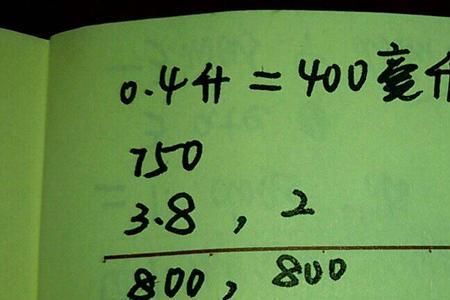 0.4升=400毫升
750
3.8,2
800,800